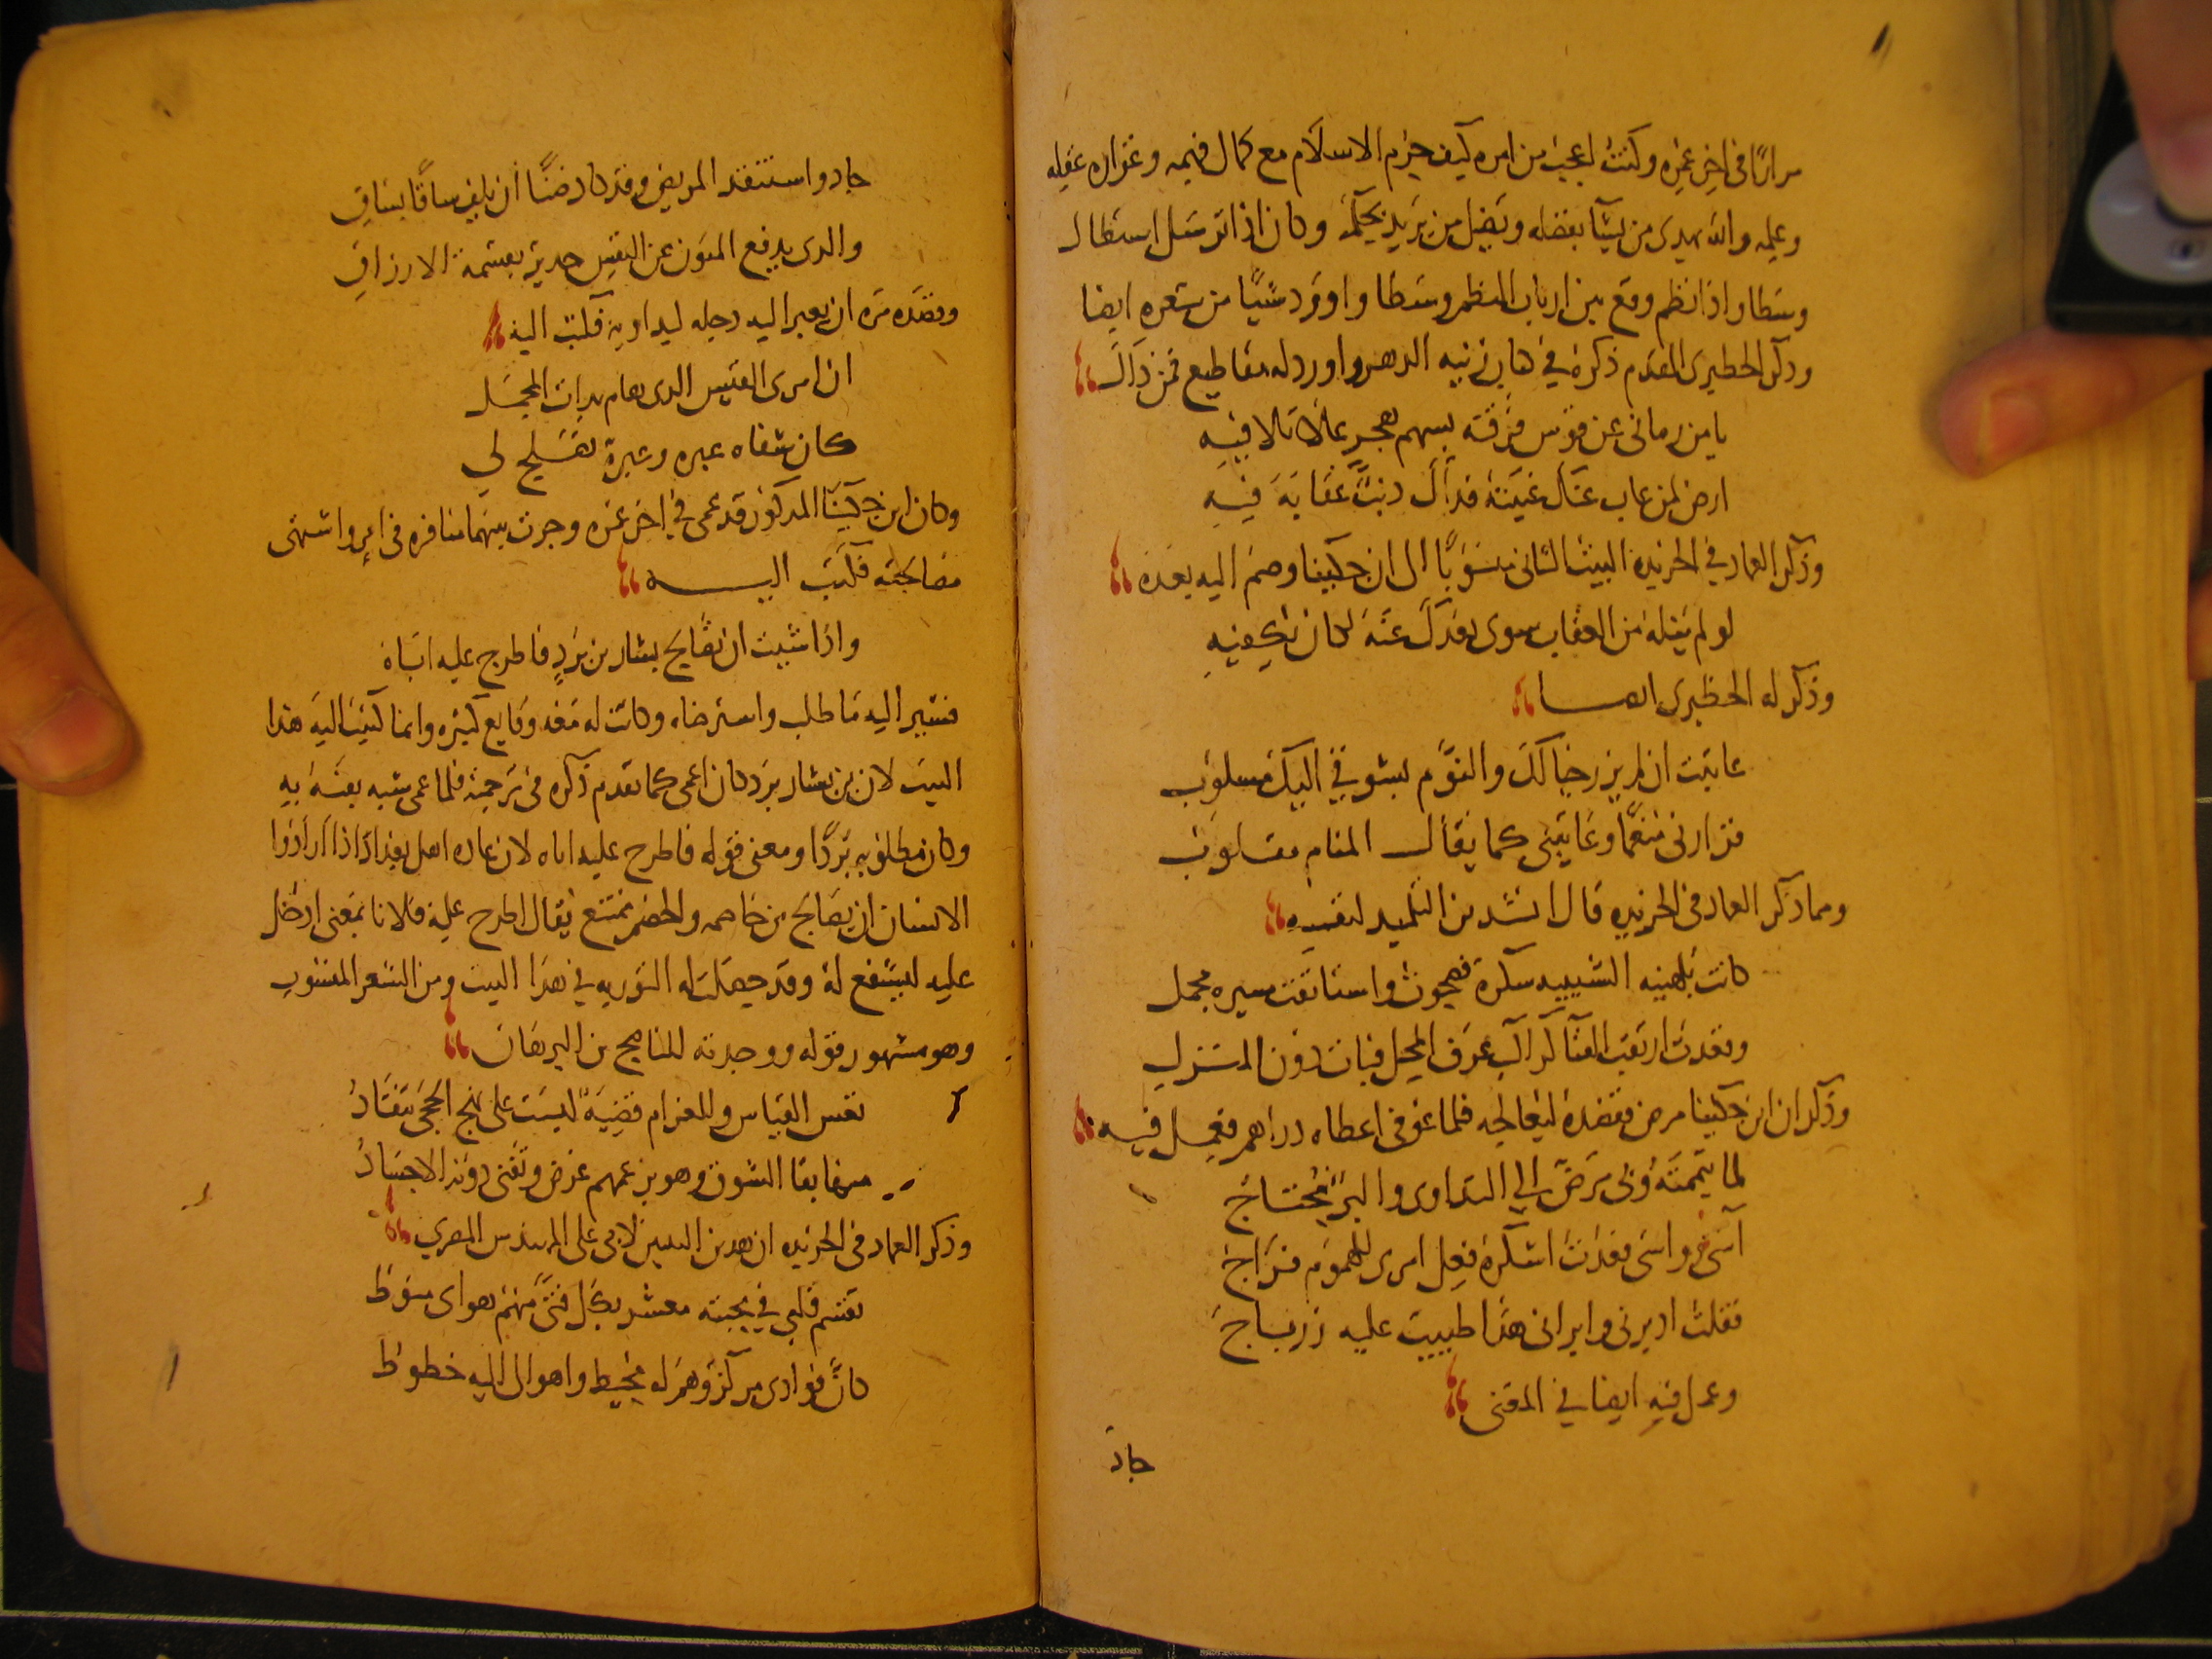 مرارًا في اخر عمره وكنت اعجب من امره كيف حرم الاسلام مع كمال فهمه وغزاره عقله
وعلمه والله يهدى من يشآ بفضله ويضل من يريد بحكمه وكان اذا ترسل استطال
وسطا واذا نظم وقع بين ارباب النظم وسطا واورد شيًا من شعره ايضا
وذكر الحظيرى المقدم ذكره في كتاب زنيه الدهر واورد له مقاطيع فمن ذاك
يا من رمانى عن قوس فرقته بسهم هجر علا تلافيه
ارض لمن غاب عنك غيبته فذاك ذنبٌ عقابه فيه
وذكر العماد في الخريدة البيت الثانى منسوبًا الى ابن حكينا وضم اليه بعده
لو لم ينله من العقاب سوى بعدك عنه لكان يكفيه
وذكر له الحظيرى ايضــا
عاتبت اذ لم يزر خيالك والنوم بشوقي اليك مسلوب
فزارنى منعمًا وعاتبنى كما يقال المنام مقلوب
ومما ذكر العماد في الخريده قال انشد بن التلميذ لنفسه
كانت بلهنيه الشبيبه سكرة فصحوت واستانفت سيره مجمل
وقعدت ارتقب الفنآ كراكب عرف المحل فبات دون المنزل
وذكر ان ابن حكينا مرض فقصده ليعالجه فلما عوفى اعطاه دراهم فعمل فيه
لما تيممته وبى مرض الى التداوى والبرء محتاج
آسى وواسى فعدت اشكره فعل امرى للهموم فراج
فقلت اذ برنى وابرانى هذا طبيب عليه زرباج
وعمل فيه ايضا في المعنى
جاد
جاد واستنقذ المريض وقد كاد ضنًا ان يلف ساقًا بساق
والدى يدفع المنون عن النفس جدير بقسمة الارزاق
وقصده مره ان يعبر اليه دجله ليداويه فكتب اليه
ان امرى القيس الدى هام بدات المحمل
كان شفاه عبره وعبرة تصلح لي
وكان ابن حكينا المدكور قد عمى في اخر عمره وجرت بينهما منافره في امر واشتهى
مصالحته فكتب اليــه
واذا شيت ان تصالح بشار بن بردٍ فاطرح عليه اباه
فسير اليه ما طلب واسترضاه وكانت له معه وقايع كثيره وانما كتب اليه هذا
البيت لان بن بشار برد كان اعمى كما تقدم ذكره في ترجمته فلما عمى شبه نفسه به
وكان مطلوبه بردًا ومعنى قوله فاطرح عليه اباه لان عاده اهل بغداد اذا ارادوا
الانسان ان يصالح من خاصمه والخصم ممتنع يقال اطرح عليه فلانا بمعنى ادخل
عليه ليشفع له وقد حصلت له التوريه في هذا البيت ومن الشعر المنسوب
وهو مشهور قوله ووجدته للناصح بن الدهان
تعس القياس وللغرام قضيةٌ ليست على نهج الحجى تنقادُ
منها بقا الشوق وهو بزعمهم عرض وتفنى دونه الاجسادُ
وذكر العماد في الخريده ان هدين البيتين لابى على المهندس المصري
تقسم قلبي في محبته معشر بكل فتًى منهم هواى منوط
كانّ فوادى مركز وهم له محيط واهوال اليه خطوط